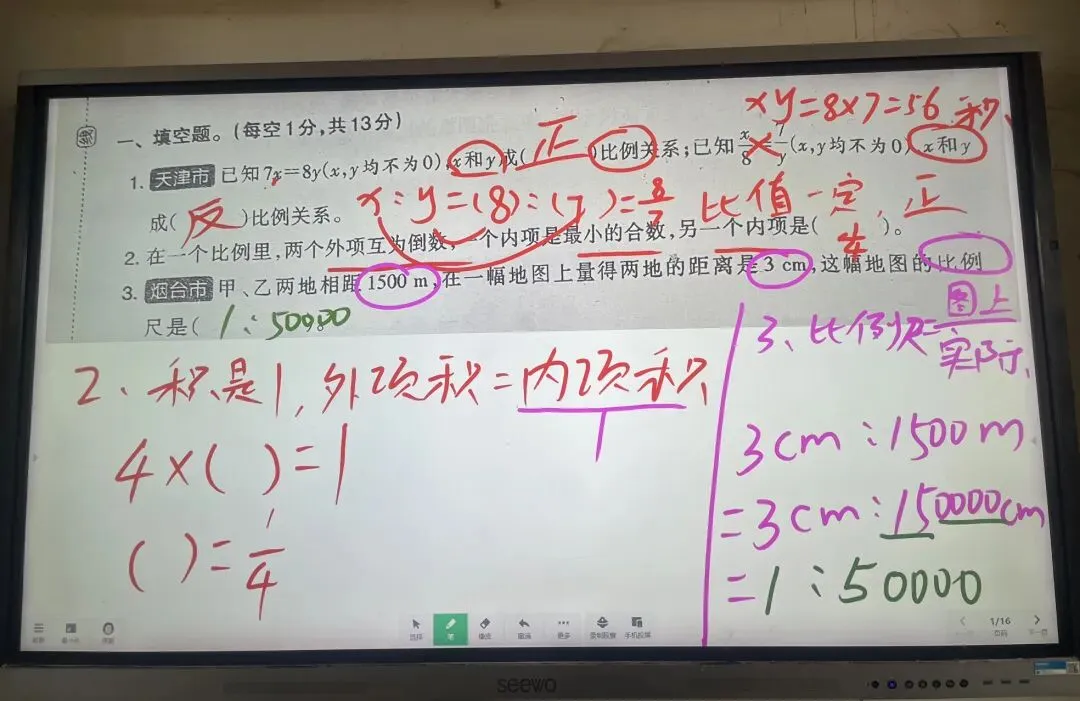 xy=8×7=56 积
一、填空题。(每空1分,共13分)
1. 天津市 已知7x=8y(x,y均不为0),x和y成(正)比例关系;已知x/8=7/y(x,y均不为0),x和y
成(反)比例关系。
x:y=(8):(7)=8/7 比值一定,正
2. 在一个比例里,两个外项互为倒数,一个内项是最小的合数,另一个内项是(1/4)。
3. 烟台市 甲、乙两地相距1500 m,在一幅地图上量得两地的距离是3 cm,这幅地图的比例
尺是(1:50000
2、积是1,外项积=内项积
1
4×( )=1
( )=1/4
3、比例尺=图上/实际
3cm:1500m
=3cm:150000cm
=1:50000
选择
笔
橡皮
撤消
更多
录制胶囊
手机投屏
1/16
页码
下一页
seewo